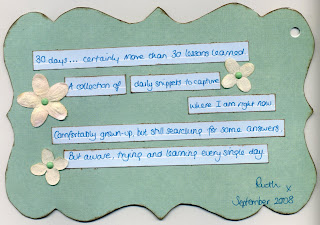 30 days... certainly more than 30 lessons learned.
A collection of daily snippets to capture
where I am right now
Comfortably grown-up, but still searching for some answers
But aware, trying and learning every single day
Ruth x
September 2008